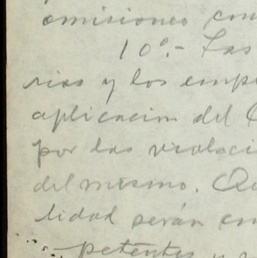 omisiones com
10º.- Las
rias y los emp
aplicacion del C
por las violaci
del mismo. Cu
lidad serán en
petentes y